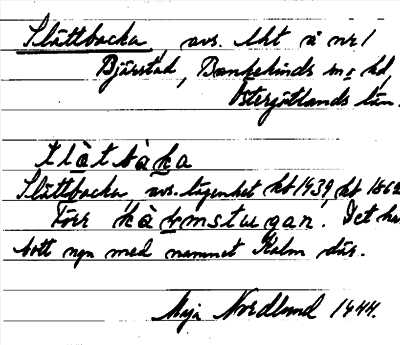 Slättbacka, avs. lht å nr 1
Bjärstad, Bankekinds sn o hd,
Östergötlands län.
slàtbàka
Slättbacka avs. lägenhet hb 1939, hb 1862
Förr kàlmstugan. Det har
bott ngn med namnet Kalm där.
Maja Nordlund 1944.